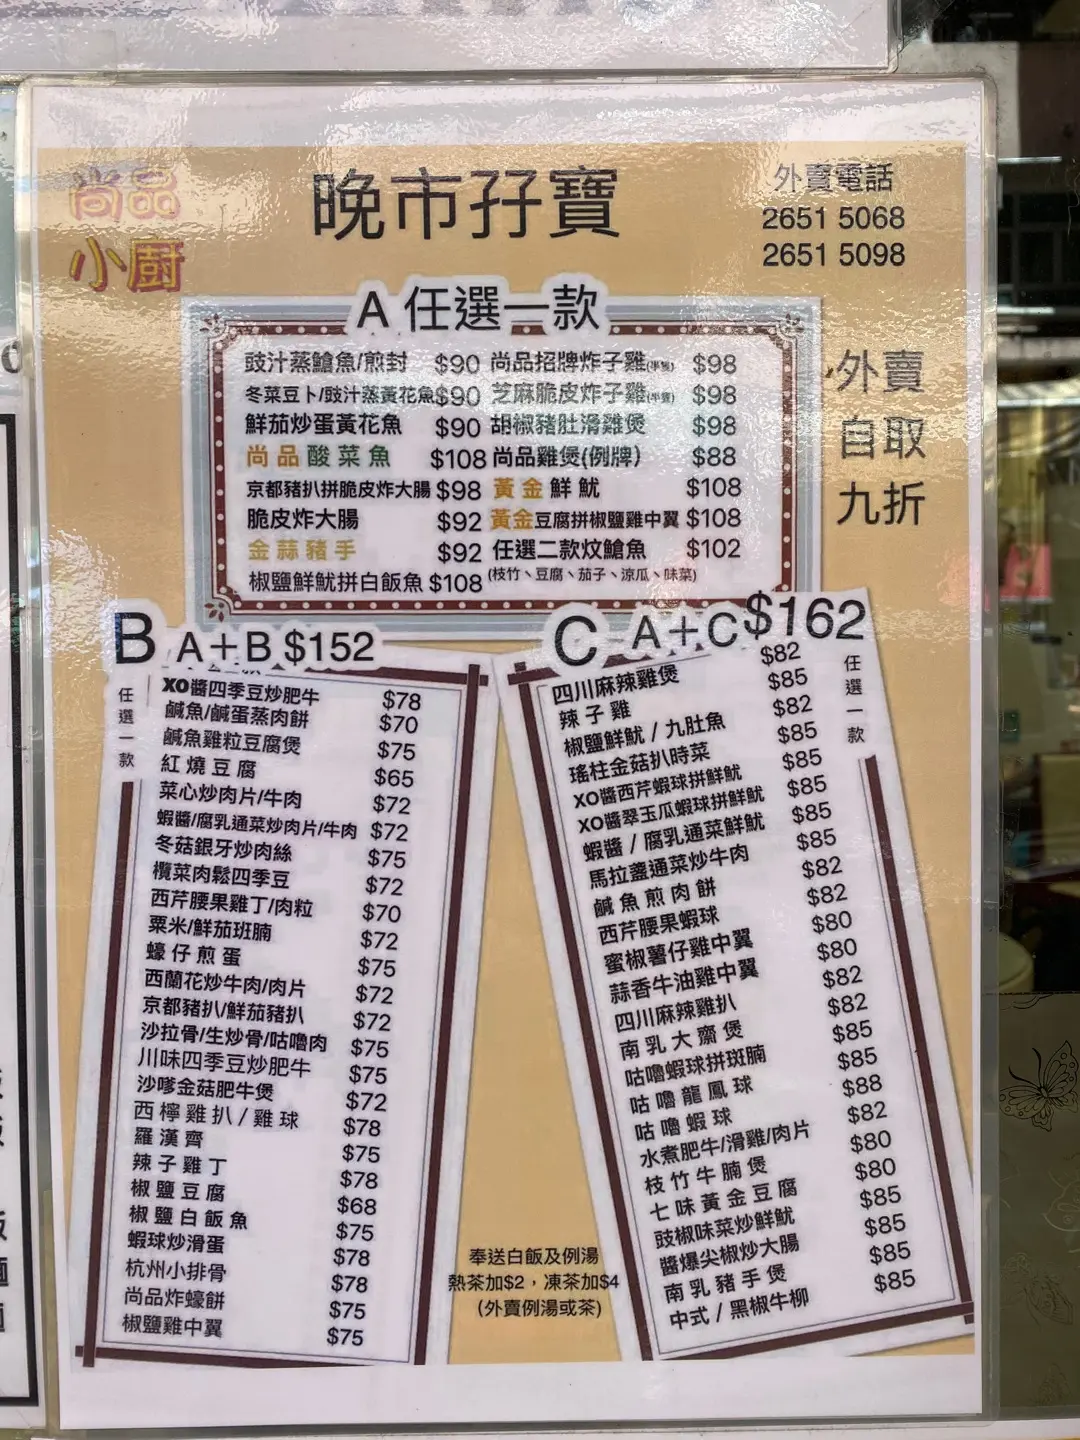 尚品
小廚
晚市孖寶
外賣電話
2651 5068
2651 5098
外賣
自取
九折
A 任選一款
豉汁蒸鱠魚/煎封 $90
冬菜豆卜/豉汁蒸黃花魚 $90
鮮茄炒蛋黃花魚 $90
尚品酸菜魚 $108
京都豬扒拼脆皮炸大腸 $98
脆皮炸大腸 $92
金蒜豬手 $92
椒鹽鮮魷拼白飯魚 $108
尚品招牌炸子雞(半隻) $98
芝麻脆皮炸子雞(半隻) $98
胡椒豬肚滑雞煲 $98
尚品雞煲(例牌) $88
黃金鮮魷 $108
黃金豆腐拼椒鹽雞中翼 $108
任選二款炆鱠魚 $102
(枝竹、豆腐、茄子、涼瓜、味菜)
B A+B $152
任選一款
XO醬四季豆炒肥牛 $78
鹹魚/鹹蛋蒸肉餅 $70
鹹魚雞粒豆腐煲 $75
紅燒豆腐 $65
菜心炒肉片/牛肉 $72
蝦醬/腐乳通菜炒肉片/牛肉 $72
冬菇銀牙炒肉絲 $75
欖菜肉鬆四季豆 $72
西芹腰果雞丁/肉粒 $70
粟米/鮮茄班腩 $72
蠔仔煎蛋 $75
西蘭花炒牛肉/肉片 $72
京都豬扒/鮮茄豬扒 $72
沙拉骨/生炒骨/咕嚕肉 $75
川味四季豆炒肥牛 $75
沙嗲金菇肥牛煲 $72
西檸雞扒/雞球 $78
羅漢齊 $75
辣子雞丁 $78
椒鹽豆腐 $68
椒鹽白飯魚 $75
蝦球炒滑蛋 $78
杭州小排骨 $78
尚品炸蠔餅 $75
椒鹽雞中翼 $75
C A+C $162
任選一款
四川麻辣雞煲 $82
辣子雞 $85
椒鹽鮮魷/九肚魚 $82
瑤柱金菇扒時菜 $85
XO醬西芹蝦球拼鮮魷 $85
XO醬翠玉瓜蝦球拼鮮魷 $85
蝦醬/腐乳通菜鮮魷 $85
馬拉盞通菜炒牛肉 $85
鹹魚煎肉餅 $82
西芹腰果蝦球 $82
蜜椒薯仔雞中翼 $80
蒜香牛油雞中翼 $80
四川麻辣雞扒 $82
南乳大齋煲 $82
咕嚕蝦球拼斑腩 $85
咕嚕龍鳳球 $85
咕嚕蝦球 $88
水煮肥牛/滑雞/肉片 $82
枝竹牛腩煲 $80
七味黃金豆腐 $80
豉椒味菜炒鮮魷 $85
醬爆尖椒炒大腸 $85
南乳豬手煲 $85
中式/黑椒牛柳 $85
奉送白飯及例湯
熱茶加$2，凍茶加$4
(外賣例湯或茶)